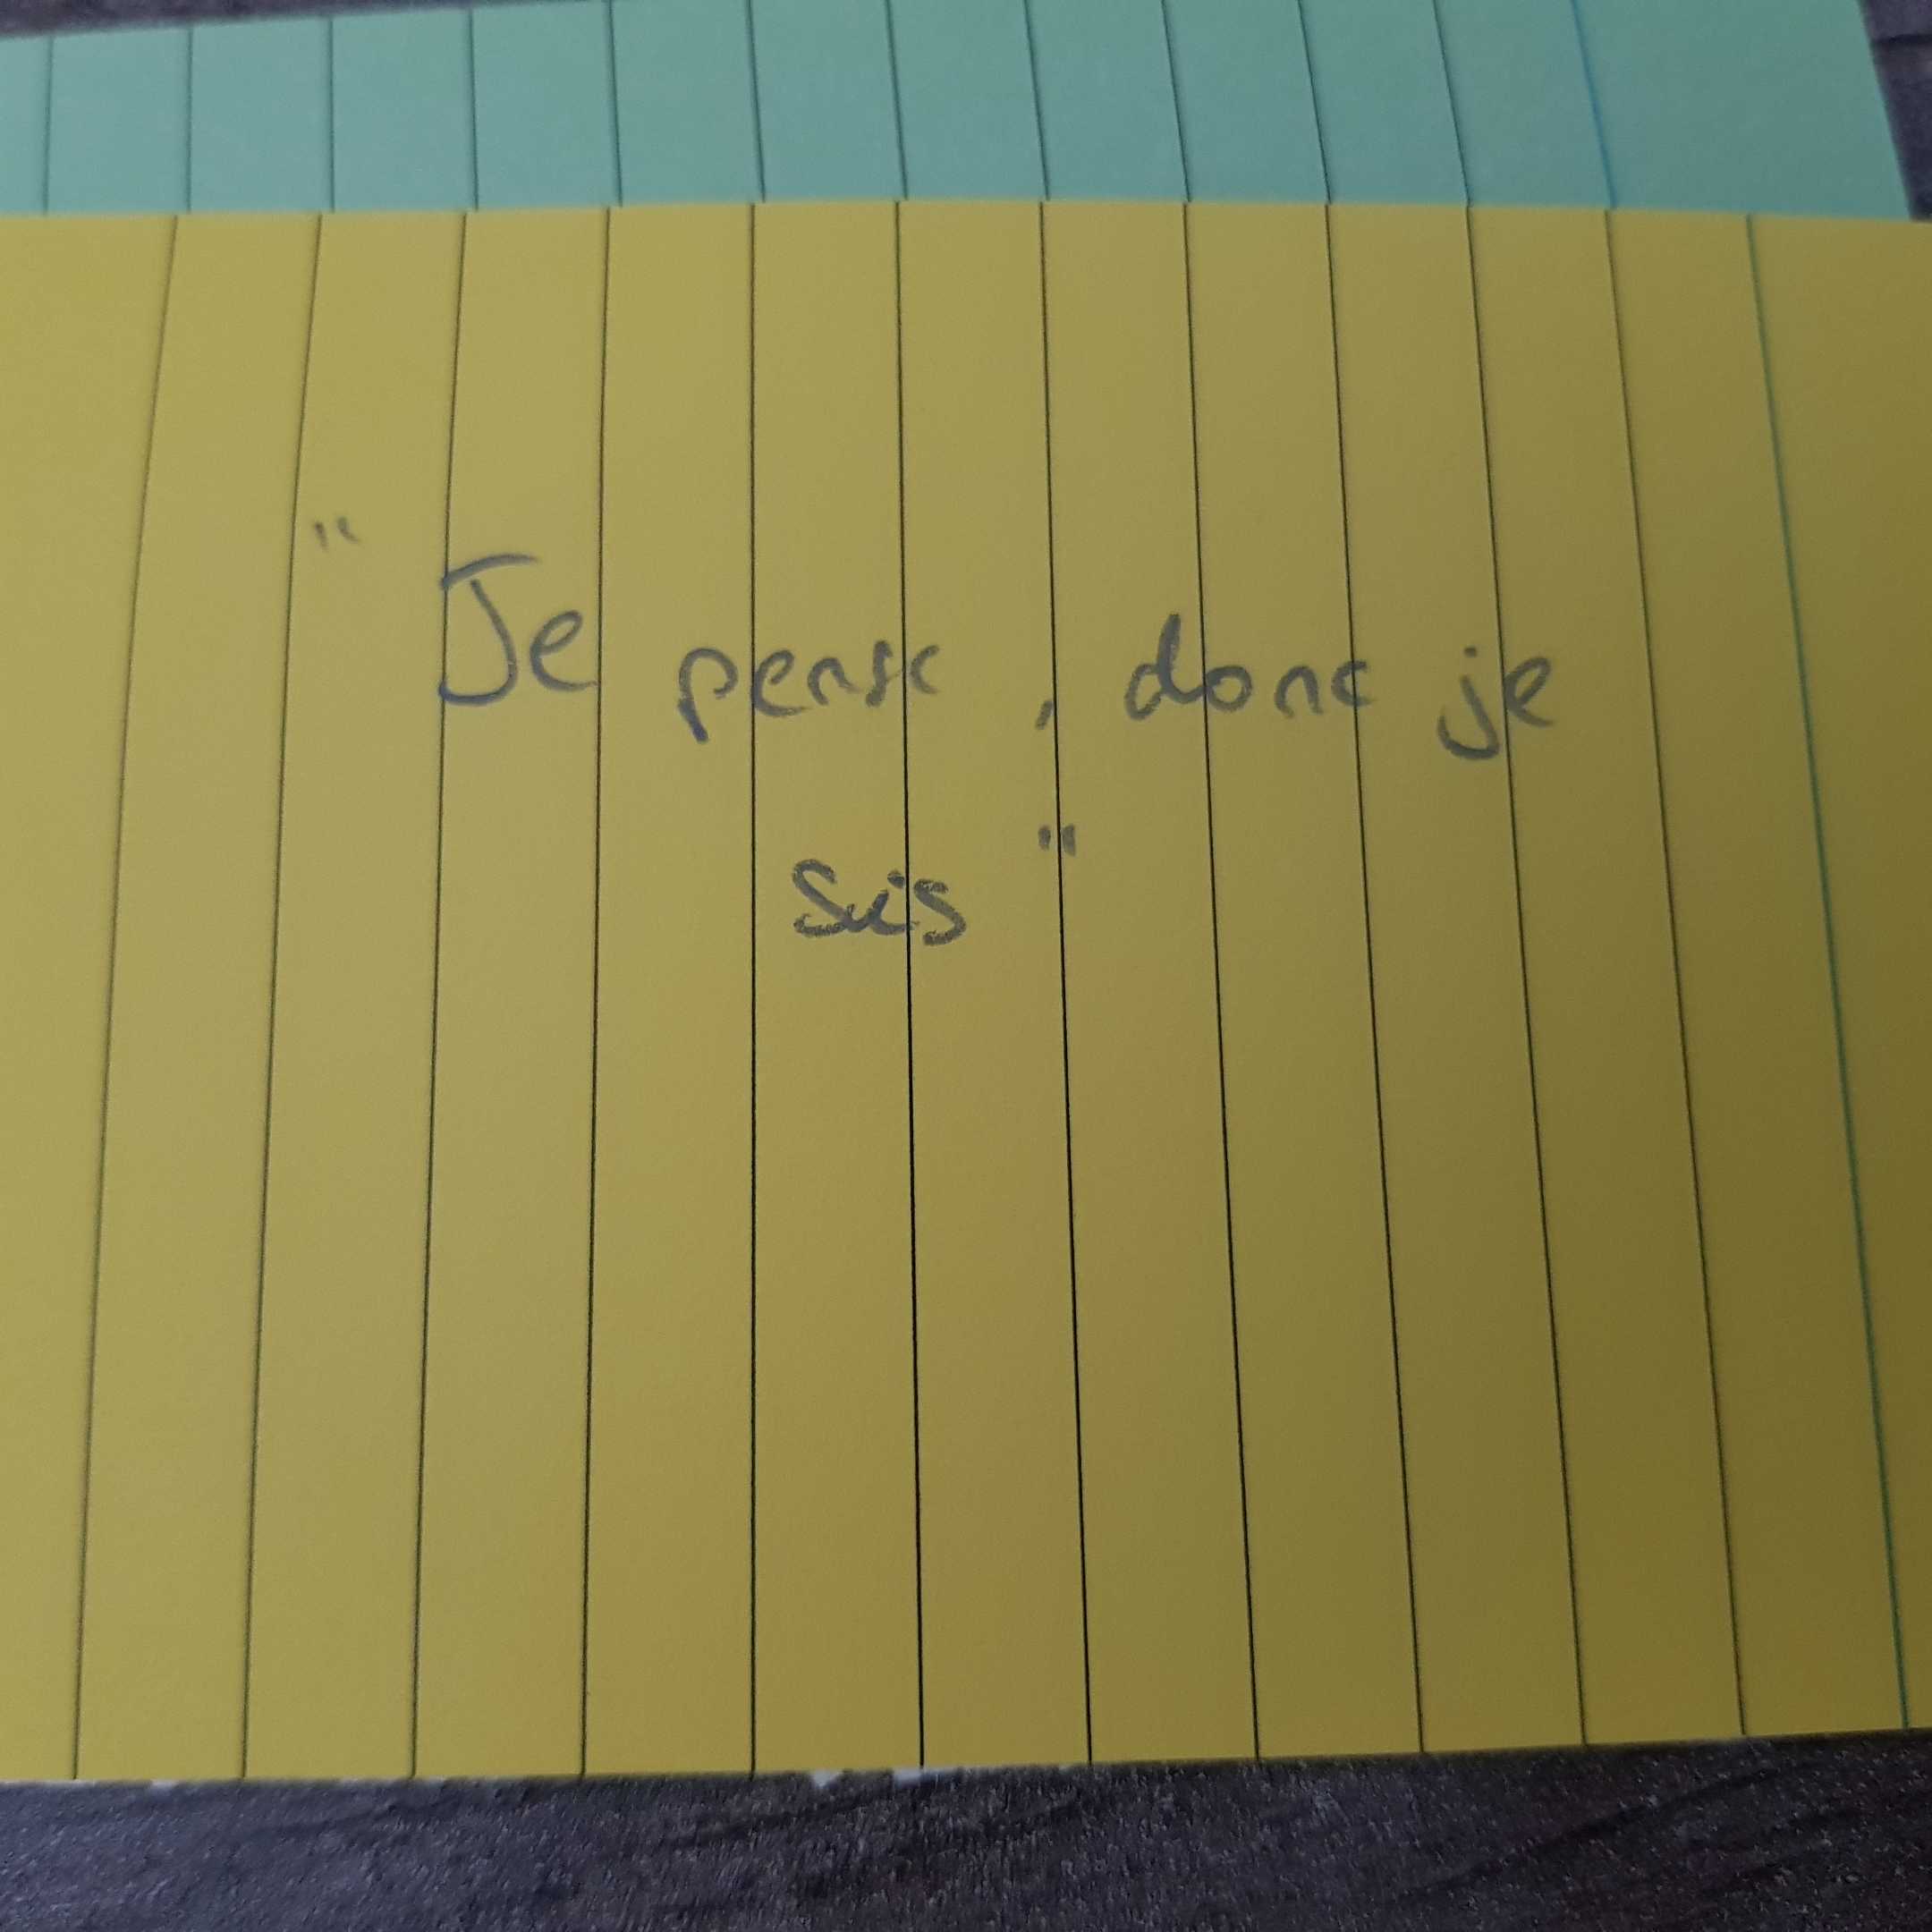 "Je pense, donc je
suis"